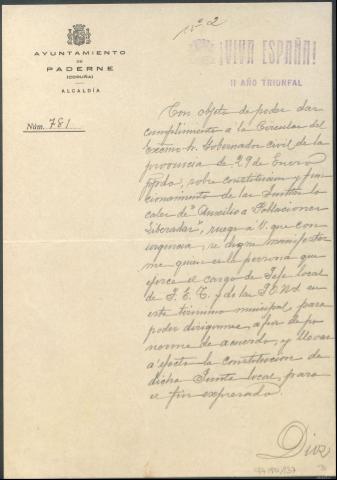 nº 2
AYUNTAMIENTO
DE
PADERNE
(CORUÑA)
ALCALDÍA
¡VIVA ESPAÑA!
II AÑO TRIUNFAL
Núm. 781
Con objeto de poder dar
cumplimiento a la Circular del
Excmo Sr. Gobernador civil de la
provincia de 29 de Enero
ppdo, sobre constitucion y fun
cionamiento de las Juntas lo
cales de "Auxilio a Poblaciones
Liberadas", ruego a V. que con
urgencia, se digne manifestar
me quien es la persona que
ejerce el cargo de Jefe local
de F.E.T. y de las J.O.N.S. en
este termino municipal, para
poder dirigirme, a fin de po
nerme de acuerdo, y llevar
a efecto la constitución de
dicha Junta local, para
el fin expresado.
Dios